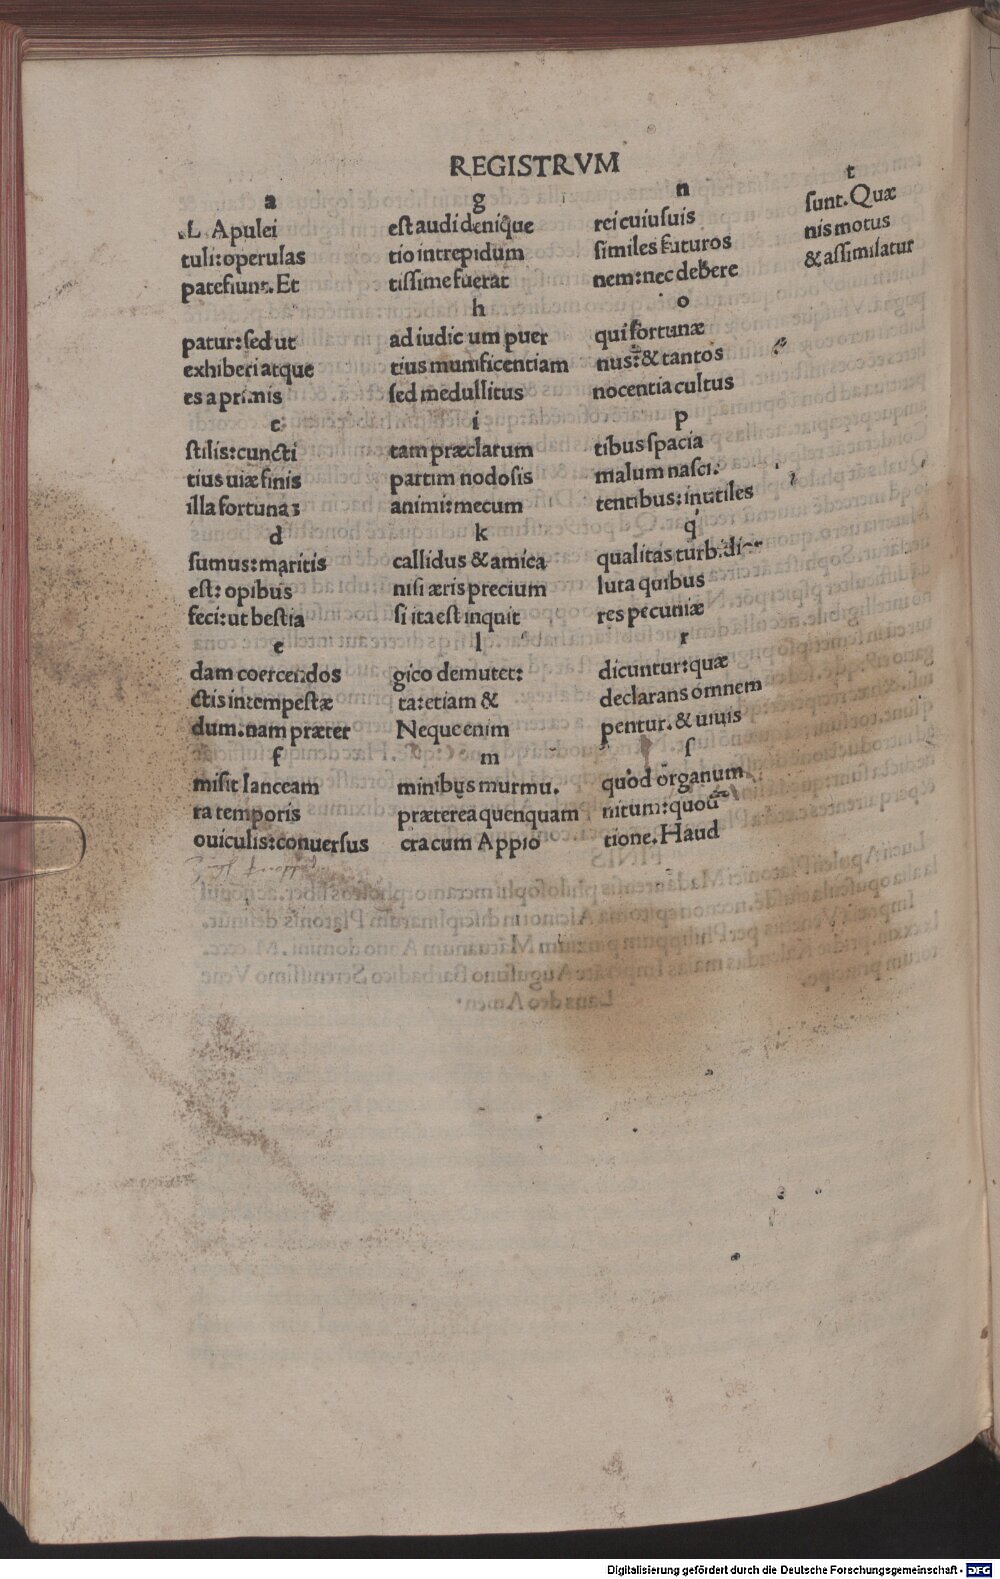 REGISTRVM
a
L. Apulei
tuli: operulas
patefiunt. Et
patur: sed ut
exhiberi atque
es a primis
c
stilis: cuncti
tius uiæ finis
illa fortunaꝫ
d
sumus: maritis
est: opibus
feci: ut bestia
e
dam coercendos
ctis intempestæ
dum. nam præter
f
misit lanceam
ra temporis
ouiculis: conuersus
g
est audi denique
tio intrepidum
tissime fuerat
h
ad iudicium puer
tius munificentiam
sed medullitus
i
tam præclarum
partim nodosis
animi: mecum
k
callidus & amica
nisi æris precium
si ita est inquit
l
gico demutet:
ta: etiam &
Neque enim
m
minibus murmu.
præterea quenquam
cra cum Appio
n
rei cuiusuis
similes futuros
nem: nec debere
o
qui fortunæ
nus: & tantos
nocentia cultus
p
tibus spacia
malum nasci:
tentibus: inutiles
q
qualitas turbidior
luta quibus
res pecuniæ
r
dicuntur: quæ
declarans omnem
pentur. & uiuis
s
quod organum
nitum: quod
tione. Haud
t
sunt. Quæ
nis motus
& assimilatur
Digitalisierung gefördert durch die Deutsche Forschungsgemeinschaft - DFG